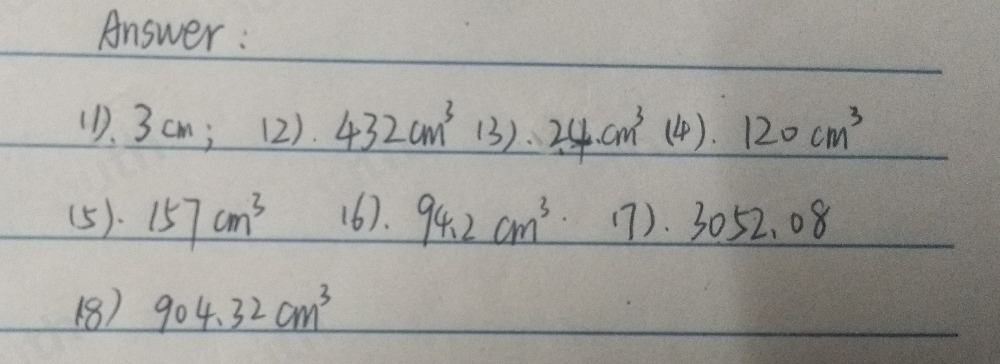 Answer:
(1). 3 cm; (2). 432 cm³ (3). 24 cm³ (4). 120 cm³
(5). 157 cm³ (6). 94.2 cm³. (7). 3052.08
(8) 904.32 cm³